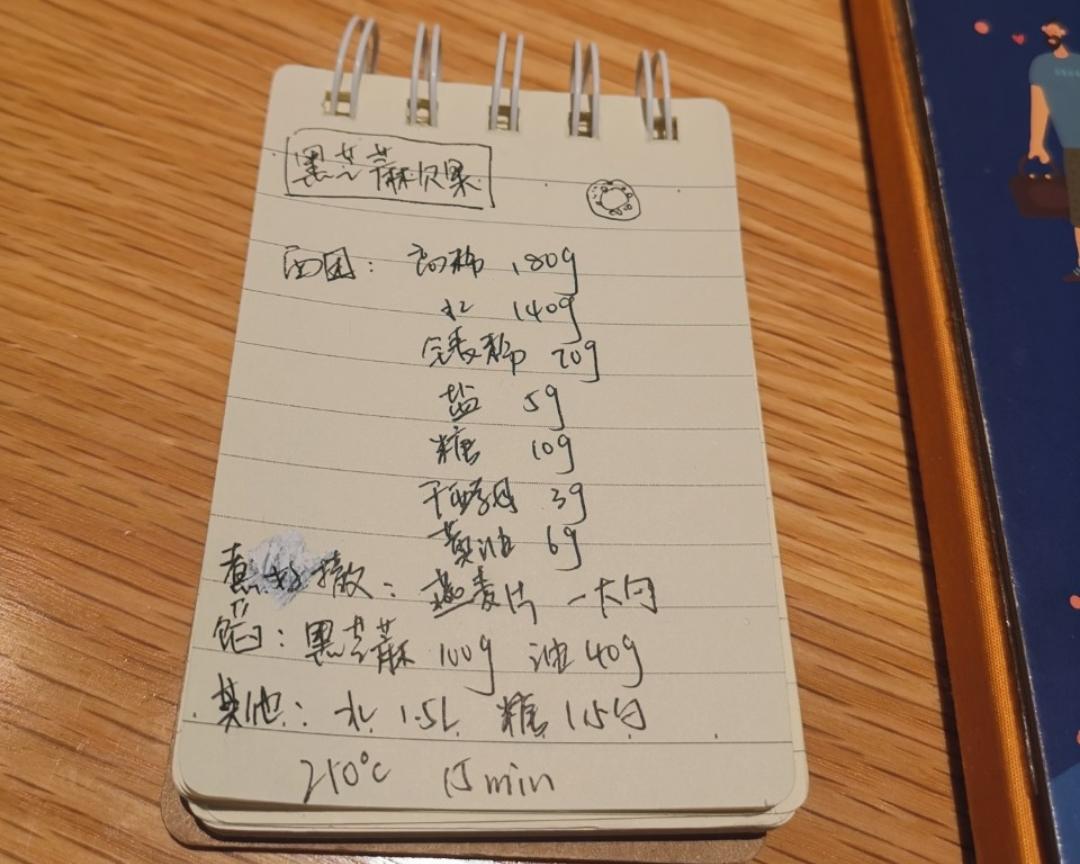 黑芝麻贝果
面团：高粉 180g
水 140g
全麦粉 20g
盐 5g
糖 10g
干酵母 3g
黄油 6g
煮好撒：燕麦片 一大勺
馅：黑芝麻 100g 油 40g
其他：水 1.5L 糖 1.5勺
210℃ 15min